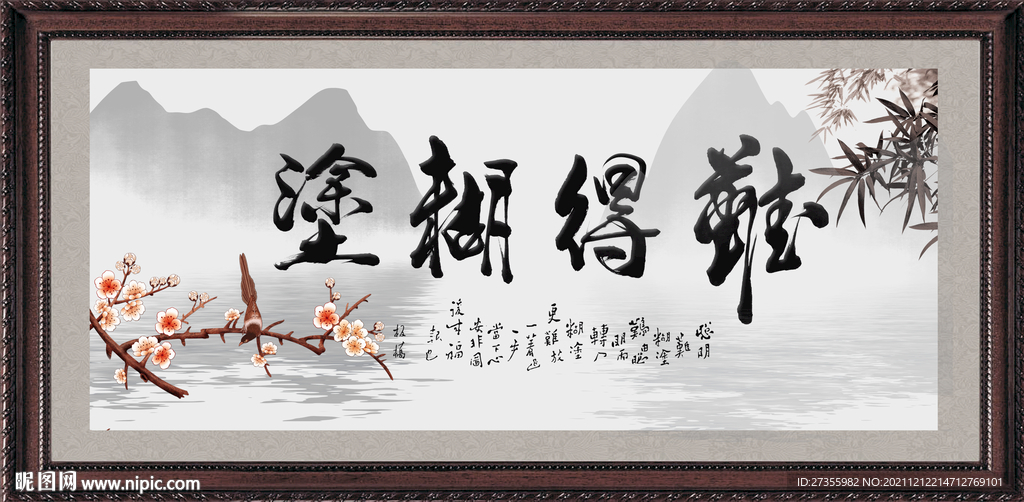 難得糊塗
聰明
難
糊塗
難由聰
明而
轉入
糊塗
更難放
一著退
一步
當下心
安非圖
後來福
報也
板橋
昵图网 www.nipic.com
ID:27355982 NO:20211212214712769101